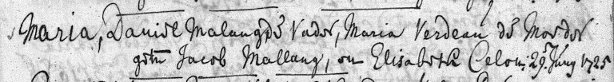 Maria, Daniel Malang dẽ Vader, Maria Verdeau dẽ Moeder
getn Jacob Mallang, en Elisabeth Celon, 29 Juny 1725